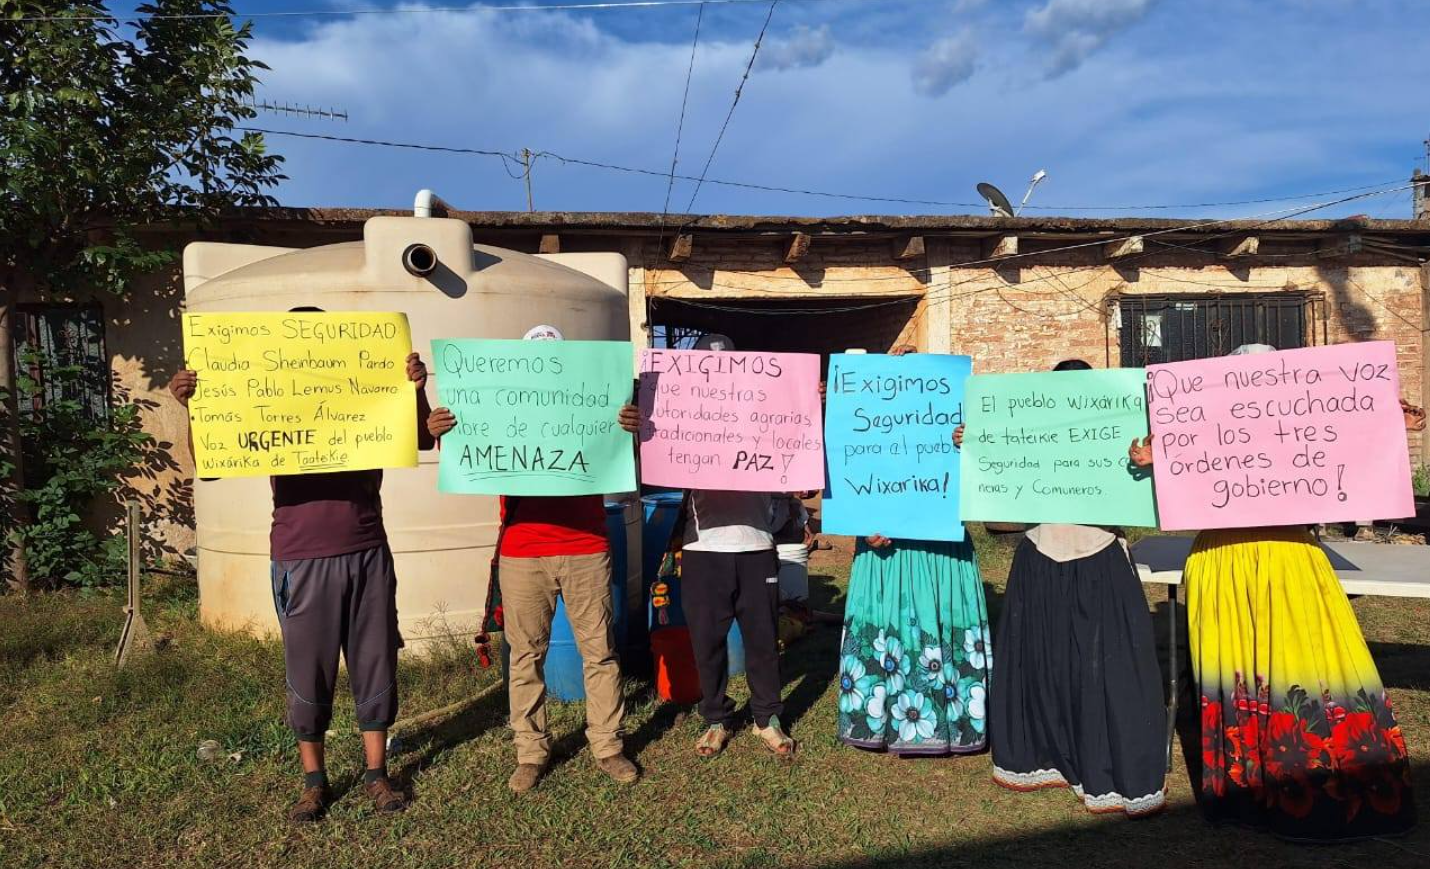 Exigimos SEGURIDAD
Claudia Sheinbaum Pardo
Jesús Pablo Lemus Navarro
• Tomás Torres Álvarez
Voz URGENTE del pueblo
Wixárika de Taateikie
Queremos
una comunidad
libre de cualquier
AMENAZA
¡EXIGIMOS
que nuestras
autoridades agrarias
tradicionales y locales
tengan PAZ!
¡Exigimos
Seguridad
para el pueblo
Wixarika!
El pueblo Wixárika
de tateikie EXIGE
Seguridad para sus
neras y Comuneros.
¡Que nuestra voz
sea escuchada
por los tres
órdenes de
gobierno!